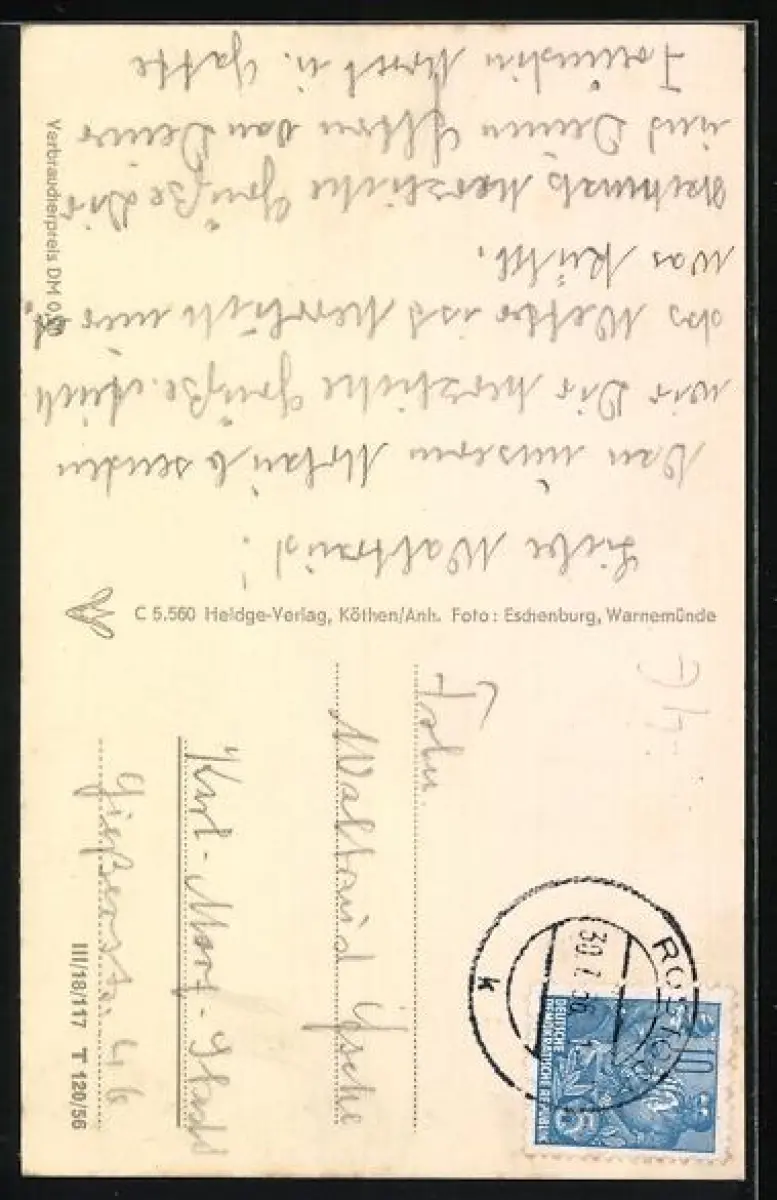 Liebe Waltraud!
Von unserm Urlaub senden
wir Dir herzliche Grüße. Auch
das Wetter ist herrlich nur
was kühl.
Nochmals herzliche Grüße Dir
und Deinen Eltern von Deiner
Freundin u. Gatte
Verbraucherpreis DM 0,
C 5.560 Heldge-Verlag, Köthen/Anh. Foto: Eschenburg, Warnemünde
Waltraud
Karl-Marx-Stadt
Gießerstr. 46
III/18/117 T 120/56
ROSTOCK
30.7.56
K
10
DEUTSCHE
DEMOKRATISCHE REPUBLIK